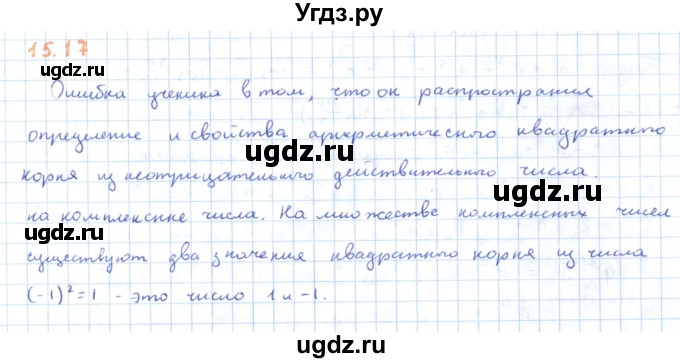 Угдз.ру
15.17
ugdz.ru ugdz.ru
Ошибка ученика в том, что он распространил
определение и свойства арифметического квадратного
ugdz.ru
корня из неотрицательного действительного числа.
ugdz.ru
на комплексные числа. На множестве комплексных чисел
ugdz.ru ugdz.ru
существуют два значения квадратного корня из числа
(-1)²=1 - это число 1 и -1.
ugdz.ru